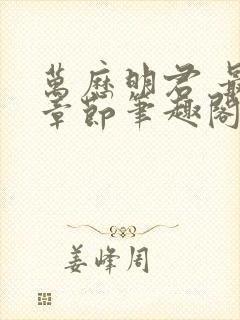 萬历明君 最
章節筆趣閣
姜峰周